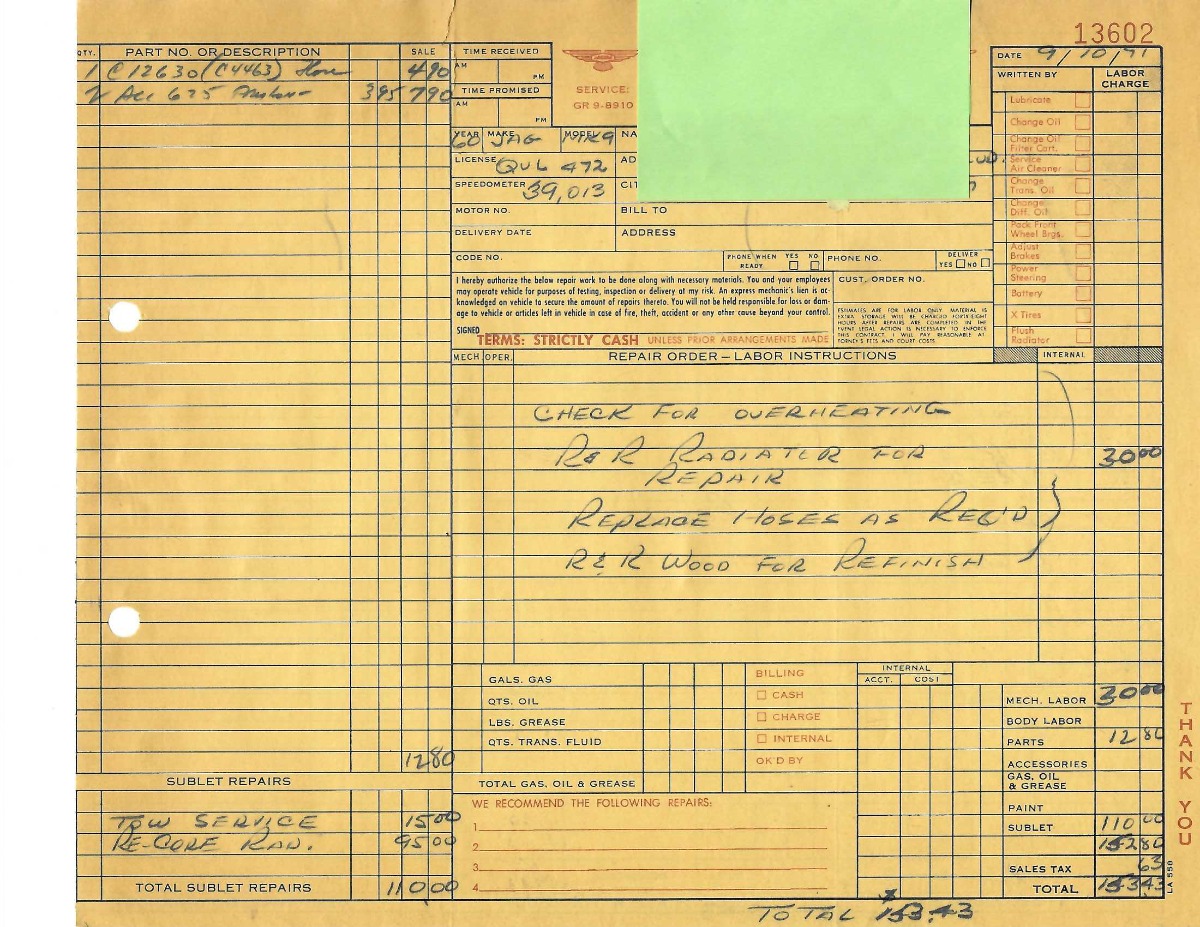 13602
QTY. PART NO. OR DESCRIPTION SALE
1 C12630 (C4463) Hose 4 90
2 Acc 625 3 95 7 90
12 80
SUBLET REPAIRS
TOW SERVICE 15 00
RE-CORE RAD. 95 00
TOTAL SUBLET REPAIRS 110 00
TIME RECEIVED
AM
PM
TIME PROMISED
AM
PM
SERVICE:
GR 9-8910
DATE 9/10/71
YEAR 60 MAKE JAG MODEL MK9 NA
LICENSE QUL 472 AD
SPEEDOMETER 39,013 CIT
MOTOR NO. BILL TO
DELIVERY DATE ADDRESS
CODE NO. PHONE WHEN READY YES NO PHONE NO. DELIVER YES NO
I hereby authorize the below repair work to be done along with necessary materials. You and your employees
may operate vehicle for purposes of testing, inspection or delivery at my risk. An express mechanic's lien is ac-
knowledged on vehicle to secure the amount of repairs thereto. You will not be held responsible for loss or dam-
age to vehicle or articles left in vehicle in case of fire, theft, accident or any other cause beyond your control.
SIGNED
TERMS: STRICTLY CASH UNLESS PRIOR ARRANGEMENTS MADE
CUST. ORDER NO.
ESTIMATES ARE FOR LABOR ONLY, MATERIAL IS
EXTRA. STORAGE WILL BE CHARGED FORTY-EIGHT
HOURS AFTER REPAIRS ARE COMPLETED. IN THE
EVENT LEGAL ACTION IS NECESSARY TO ENFORCE
THIS CONTRACT, I WILL PAY REASONABLE AT-
TORNEY'S FEES AND COURT COSTS.
WRITTEN BY LABOR CHARGE
Lubricate
Change Oil
Change Oil Filter Cart.
Service Air Cleaner
Change Trans. Oil
Change Diff. Oil
Pack Front Wheel Brgs.
Adjust Brakes
Power Steering
Battery
X Tires
Flush Radiator
MECH. OPER. REPAIR ORDER – LABOR INSTRUCTIONS INTERNAL
CHECK FOR OVERHEATING
R&R RADIATOR FOR 30 00
REPAIR
REPLACE HOSES AS REQ'D
R&R WOOD FOR REFINISH
GALS. GAS
QTS. OIL
LBS. GREASE
QTS. TRANS. FLUID
TOTAL GAS, OIL & GREASE
BILLING
CASH
CHARGE
INTERNAL
OK'D BY
INTERNAL
ACCT. COST
WE RECOMMEND THE FOLLOWING REPAIRS:
1
2
3
4
MECH. LABOR 30 00
BODY LABOR
PARTS 12 80
ACCESSORIES
GAS, OIL & GREASE
PAINT
SUBLET 110 00
152 80
SALES TAX 63
TOTAL 153 43
TOTAL $153.43
THANK YOU
LA 550